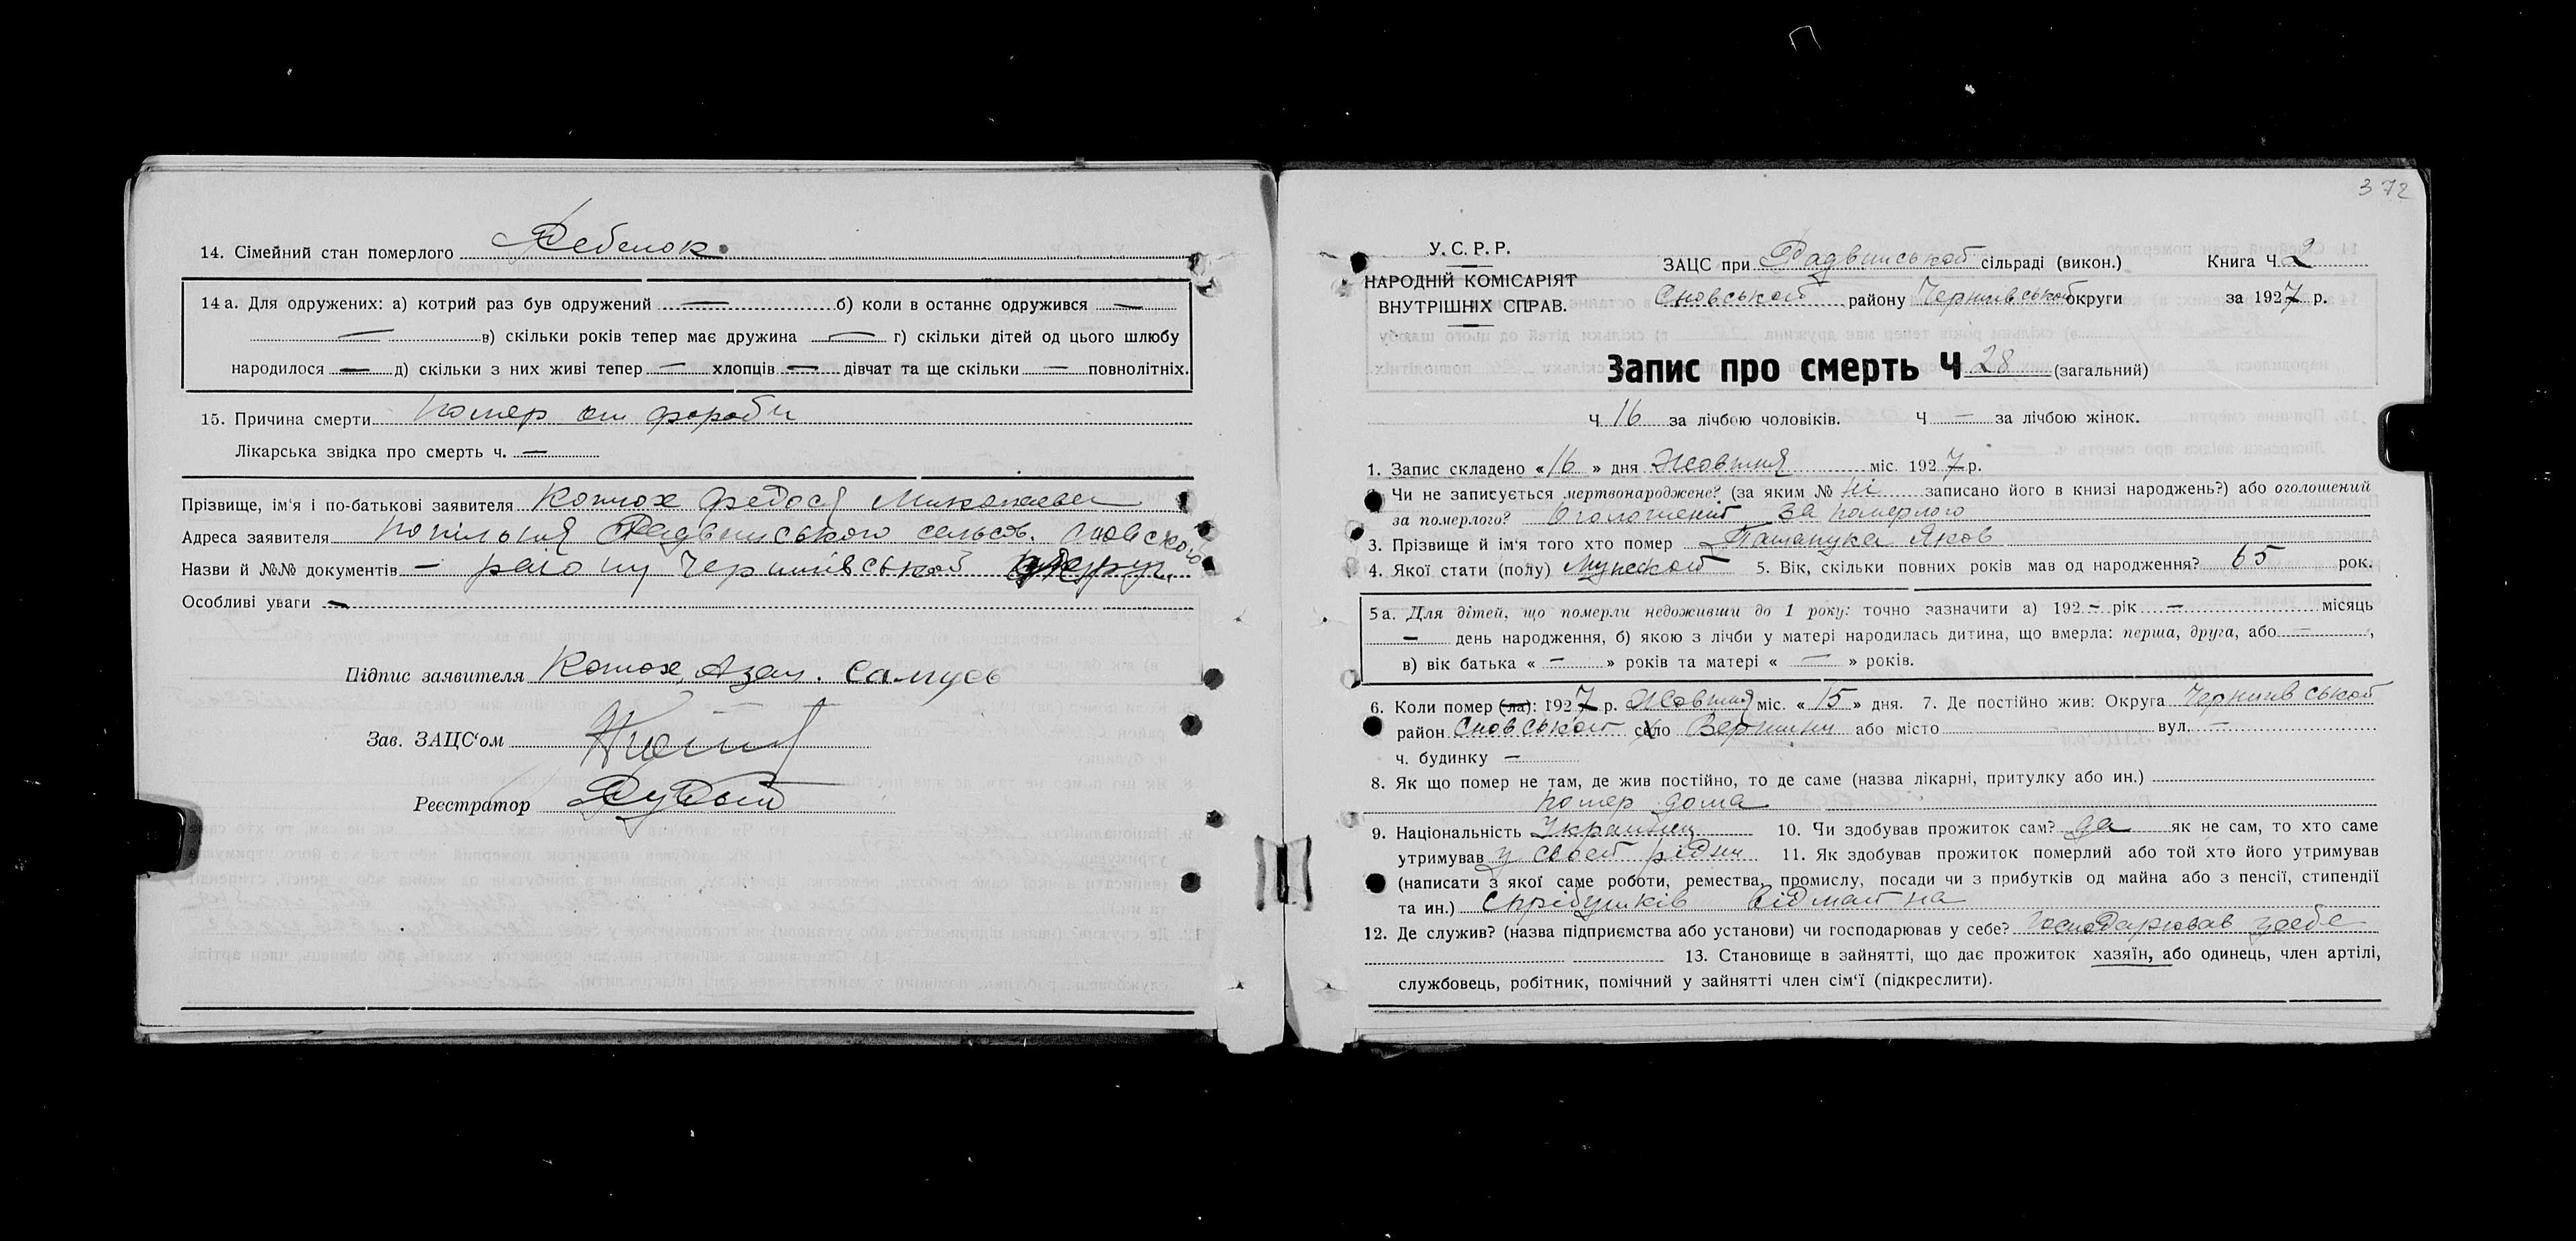 14. Сімейний стан померлого Ребенок
14 а. Для одружених: а) котрий раз був одружений — б) коли в останнє одружився —
— в) скільки років тепер має дружина — г) скільки дітей од цього шлюбу
народилося — д) скільки з них живі тепер — хлопців — дівчат та ще скільки — повнолітніх.
15. Причина смерти помер от
Лікарська звідка про смерть ч. —
Прізвище, ім'я і по-батькові заявителя Котох Федося
Адреса заявителя Радвинського сельсв. Сновского
Назви й №№ документів — району Чернигівськой округ.
Особливі уваги —
Підпис заявителя Котох
Зав. ЗАЦС'ом
Реестратор
372
У. С. Р. Р.
НАРОДНІЙ КОМІСАРІЯТ
ВНУТРІШНІХ СПРАВ.
ЗАЦС при Радвинськой сільраді (викон.) Книга Ч 2
Сновськой району Чернигвськой округи за 1927 р.
Запис про смерть Ч 28 (загальний)
Ч 16 за лічбою чоловіків. Ч — за лічбою жінок.
1. Запис складено «16» дня Жовтня міс. 1927 р.
Чи не записується мертвонароджене? (за яким № ні записано його в книзі народжень?) або оголошений
за померлого? Оголошений за померлого
3. Прізвище й ім'я того хто помер Яков
4. Якої стати (полу) Мужской 5. Вік, скільки повних років мав од народження? 65 рок.
5 а. Для дітей, що померли недоживши до 1 року: точно зазначити а) 192 – рік — місяць
— день народження, б) якою з лічби у матері народилась дитина, що вмерла: перша, друга, або —,
в) вік батька « — » років та матері « — » років.
6. Коли помер (ла): 1927 р. Жовтня міс. «15» дня. 7. Де постійно жив: Округа Чернигвськой
район Сновськой село або місто — вул. —
ч. будинку —
8. Як що помер не там, де жив постійно, то де саме (назва лікарні, притулку або ин.)
помер дома
9. Національність Украинец 10. Чи здобував прожиток сам? да як не сам, то хто саме
утримував у своей рідни 11. Як здобував прожиток померлий або той хто його утримував
(написати з якої саме роботи, ремества, промислу, посади чи з прибутків од майна або з пенсії, стипендії
та ин.) Спрібутків від майна
12. Де служив? (назва підприємства або установи) чи господарював у себе? Господарював усебе
13. Становище в зайнятті, що дає прожиток хазяїн, або одинець, член артілі,
службовець, робітник, помічний у зайнятті член сім'ї (підкреслити).